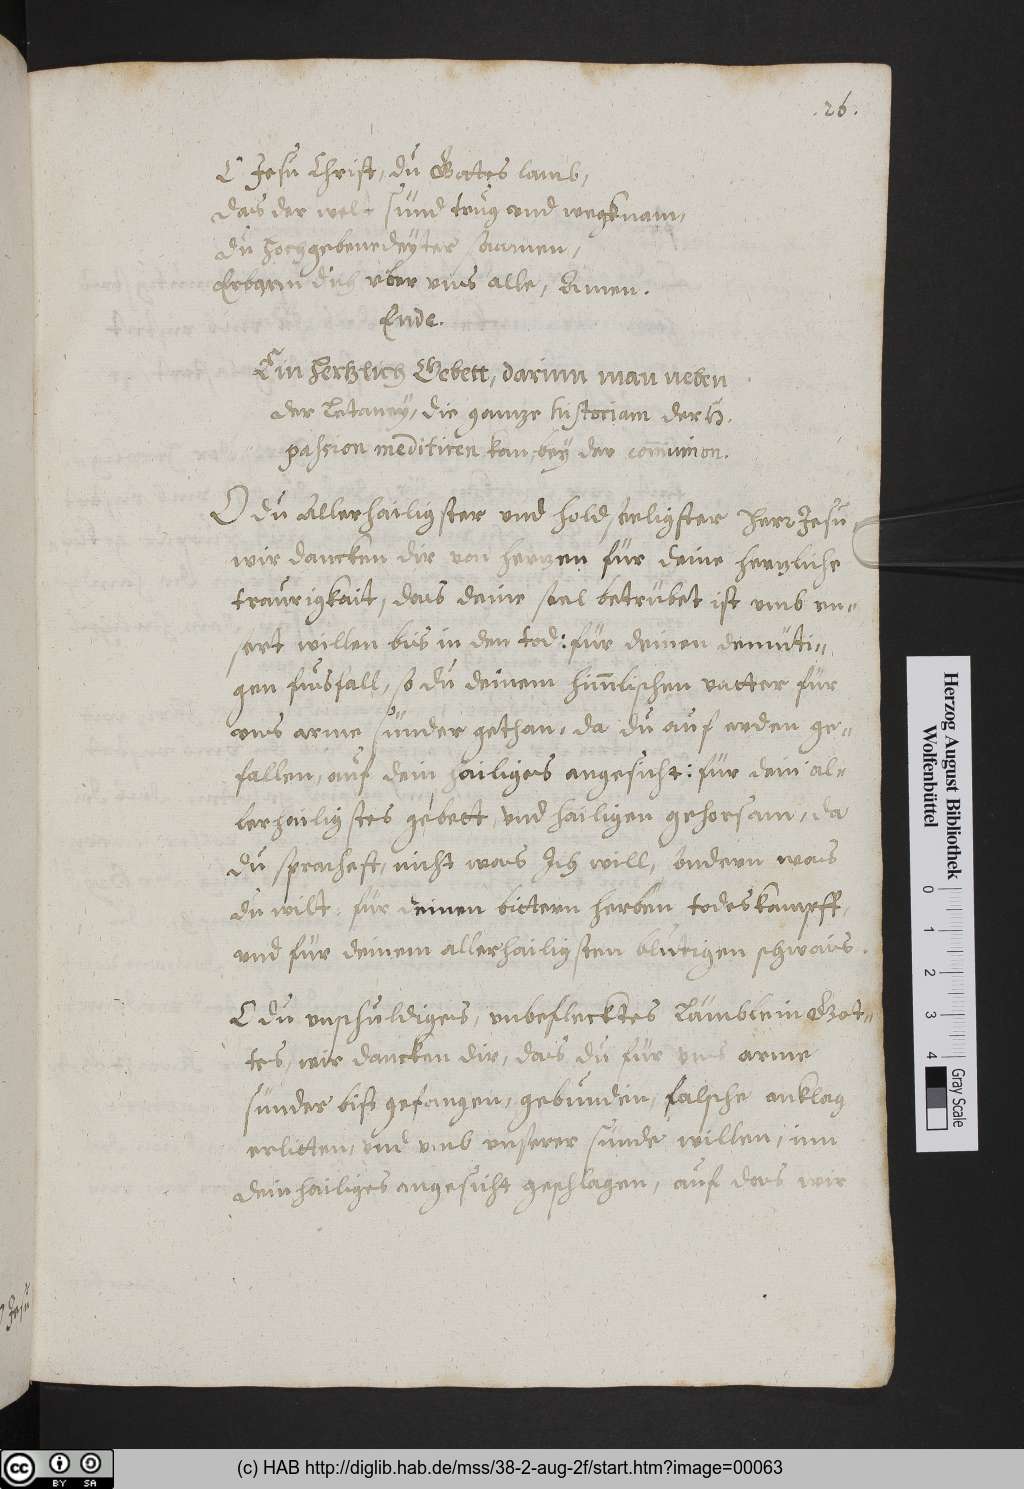 .26.
O Jesu Christ, du Gottes lamb,
das der welt sünd trug und wegknam,
du hochgebenedeyter saamen,
Erbarm dich uber uns alle, Amen.
Ende.
Ein hertzlich Gebett, darinn man neben
der Letaney, die gantze historiam der H.
passion meditiren kan, bey der com̄union.
O du Allerhailigster und holdseeligster Herr Jesu
wir dancken dir von hertzen für deine hertzliche
traurigkait, das deine seel betrübet ist umb un-
sert willen bis in den tod: für deinen demüti-
gen fusfall, so du deinem him̄lischen vatter für
uns arme sünder gethan, da du auf erden ge-
fallen, auf dein hailiges angesicht: für dein al-
lerhailigstes gebett, und hailigen gehorsam, da
du sprachest, nicht was Ich will, sondern was
du wilt: für deinen bittern herben todeskampff,
und für deinem allerhailigsten blutigen schwais.
O du unschuldiges, unbeflecktes Lämblein Got-
tes, wir dancken dir, das du für uns arme
sünder bist gefangen, gebunden, falsche anklag
erlitten, und umb unserer sünde willen, inn
dein hailiges angesicht geschlagen, auf das wir
Jesu
Herzog August Bibliothek
Wolfenbüttel
0 1 2 3 4
Gray Scale
cc BY SA
(c) HAB http://diglib.hab.de/mss/38-2-aug-2f/start.htm?image=00063